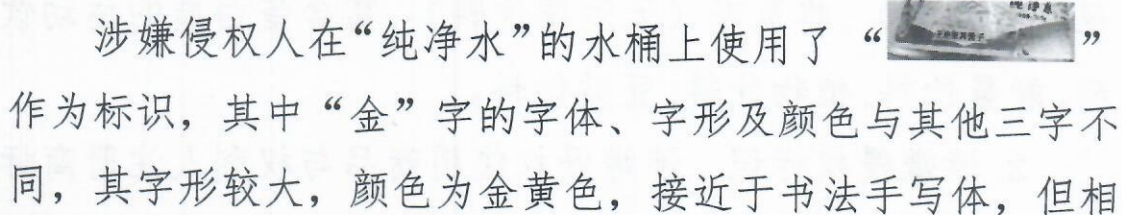 涉嫌侵权人在“纯净水”的水桶上使用了“ ”
作为标识，其中“金”字的字体、字形及颜色与其他三字不
同，其字形较大，颜色为金黄色，接近于书法手写体，但相